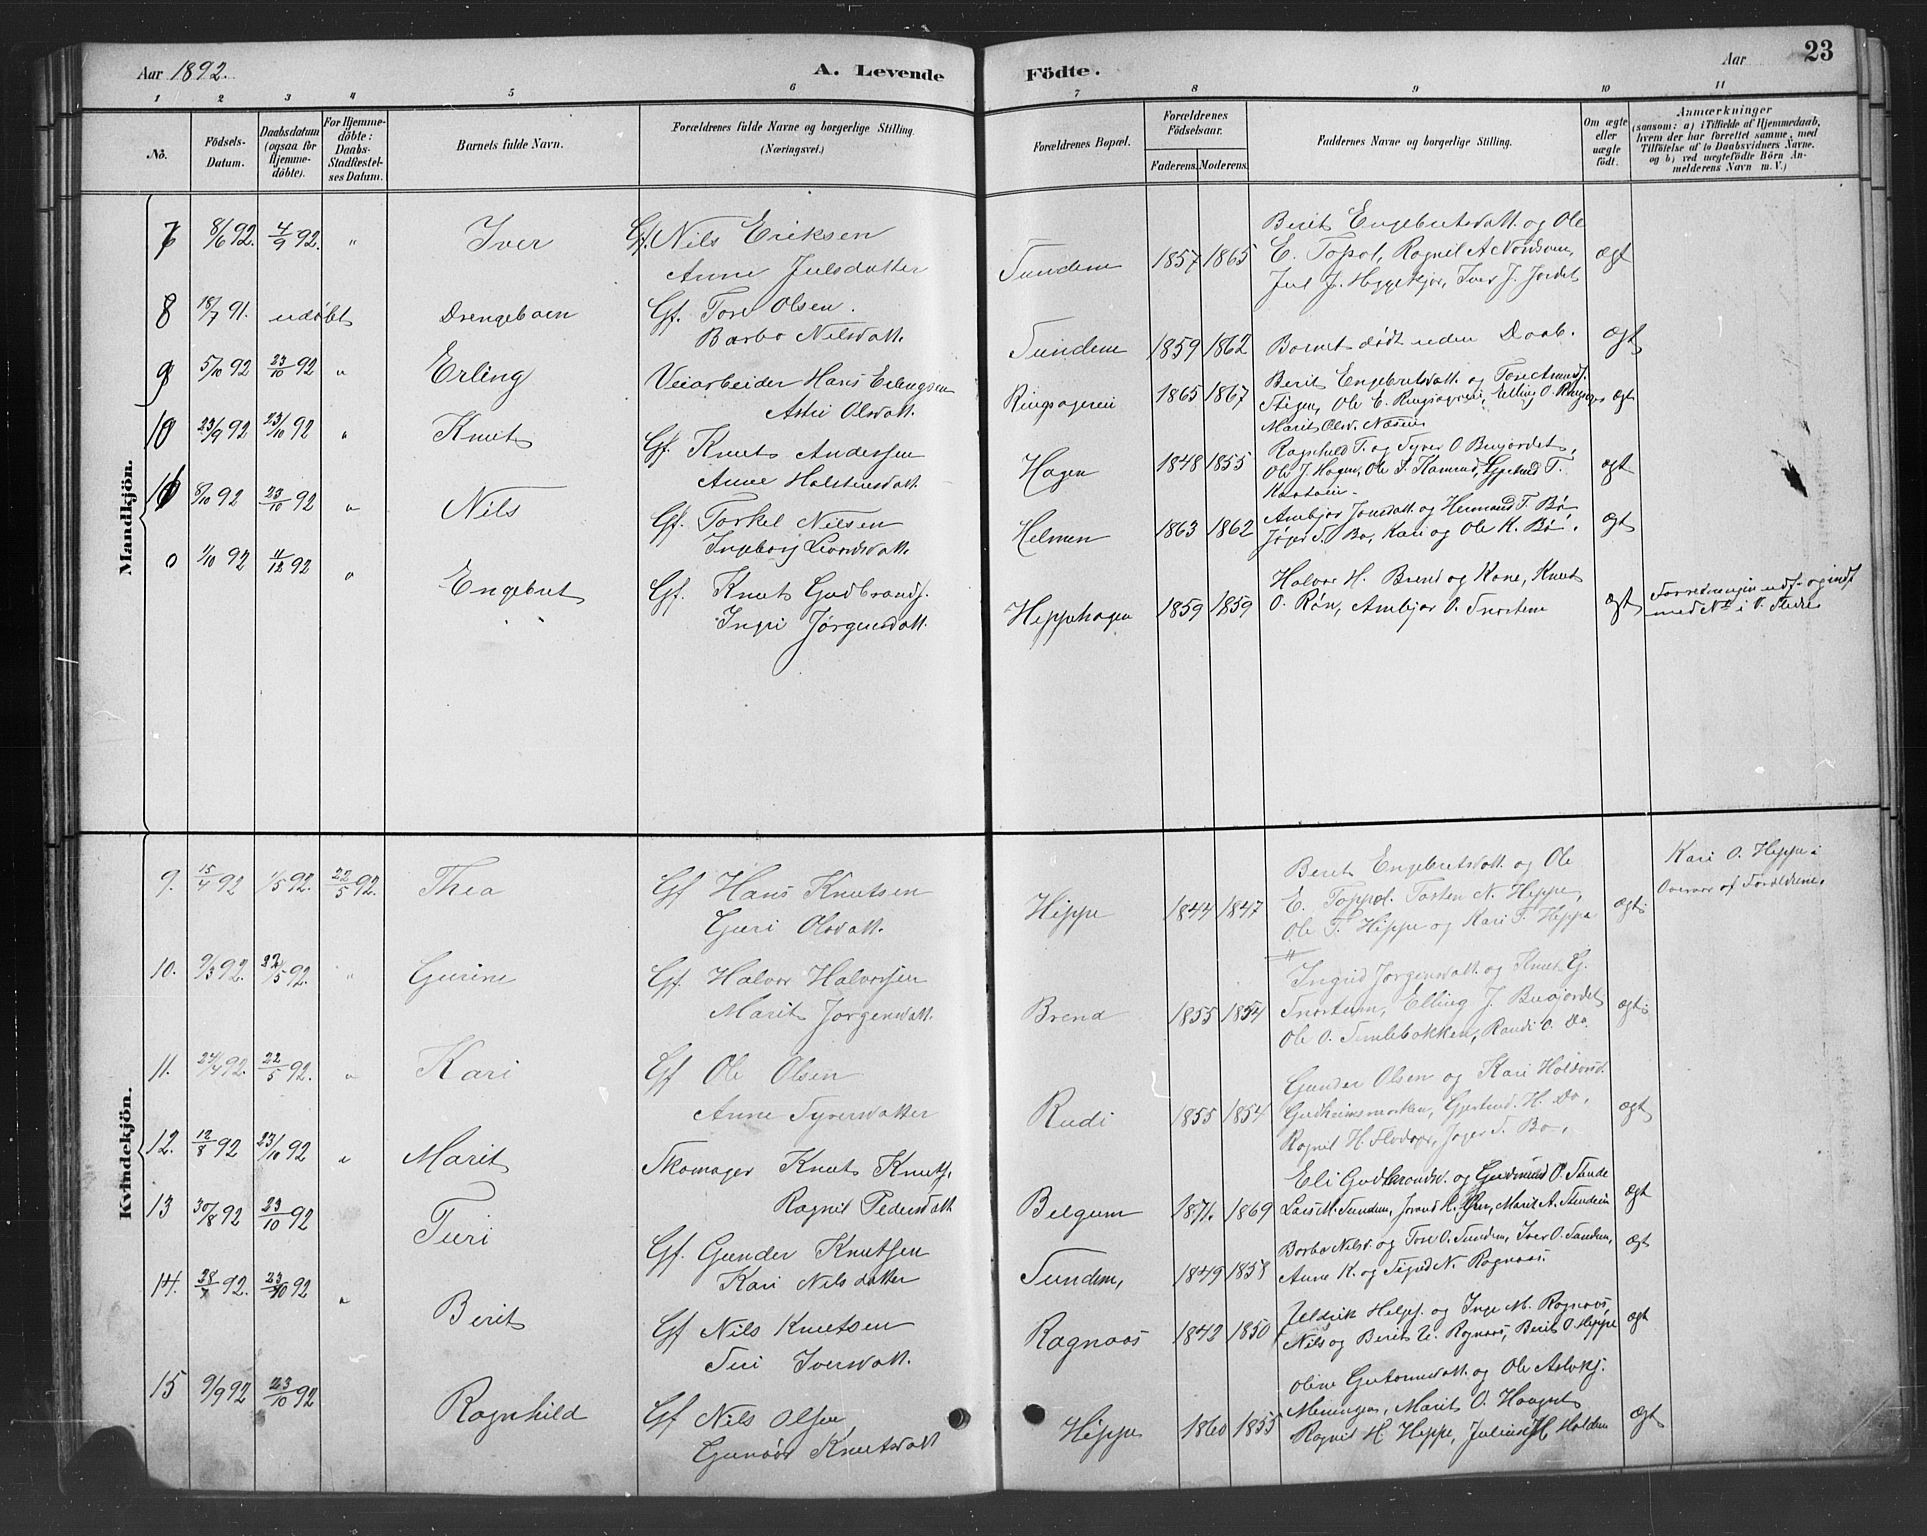 Aar 1892.
A. Levende
Födte.
Aar
23
1 2 3 4 5 6 7 8 9 10 11
No.
Födsels-Datum.
Daabsdatum (ogsaa for Hjemmedöbte).
For Hjemmedöbte: Daabs-Stadfæstelses Datum.
Barnets fulde Navn.
Forældrenes fulde Navne og borgerlige Stilling.
(Næringsvei.)
Forældrenes Bopæl.
Forældrenes Födselsaar.
Faderens. Moderens.
Faddernes Navne og borgerlige Stilling.
Om ægte eller uægte födt.
Anmærkninger
(saasom: a) i Tilfælde af Hjemmedaab,
hvem der har forrettet samme, med
Tilföielse af to Daabsvidners Navne.
og b) ved uægtefödte Börn An-
melderens Navn m. V.)
Mandkjön.
7 8/6 92. 4/9 92. " Iver Gf. Nils Eriksen
Anne Julsdatter
Sundem 1857 1865
Berit Engebretsdatt. og Ole
E. Topol, Ragnil A. Nordsven,
Jul J. Iver J. Jordet
ægt
8 18/7 91. udøbt Drengebarn Gf. Tore Olsen.
Barbo Nilsdatt.
Sundem 1859 1862 Barnet dødt uden Daab. ægt
9 5/10 92 23/10 92 " Erling Veiarbeider Hans Erlingsen
Astri Olsdatt.
Ringsagerei 1865 1867
Berit Engebretsdatt. og Tore Amunds.
Stigen, Ole E. Ringsagerei, Elling O. Ringsager
Marit Olsd. Næsei
ægt
10 23/9 92 23/10 92 " Knut Gf. Knut Andersen
Anne Holstensdatt.
Hagen 1848 1855
Ragnhild T. og Syver O. Buajordet,
Ole J. Hagen, Ole T.
ægt
8/10 92 23/10 92 " Nils Gf. Torkel Nilsen
Ingeborg
Helmen 1863 1862
Ambjør Jonsdatt. og Hermand T. Bø
Jøger T. Bø, Kari og Ole K. Bø.
ægt
0 1/10 92 11/12 92 " Engebret Gf. Knut Gudbrands.
Ingri Jørgensdatt.
Heppehagen 1859 1859
Halvor H. Brend og Kone, Knut
O. Røn, Ambjør O. Snortem
ægt
med No i V. Slidre
Kvindekjön.
9. 15/4 92 1/5 92. 22/5 92. Thea Gf Hans Knutsen
Guri Olsdatt.
Hippe 1844 1847
Berit Engebretsdatt. og Ole
E. Toppol. Torsten N. Hippe,
Ole T. Hippe og Kari T. Hippe
ægt:
Kari O. Hippe i
Overvær af Forældrene.
10. 9/3 92. 22/5 92. " Gurine Gf. Halvor Halvorsen
Marit Jørgensdatt.
Brend 1855 1854
Ingrid Jørgensdatt. og Knut G.
Snortum, Elling J. Buajordet
Ole O. Simlebakken, Randi O. Do.
ægt:
11. 24/4 92. 22/5 92. " Kari Gf Ole Olsen
Anne Syversdatter
Rudi 1855 1854
Gunder Olsen og Kari Holdersd.
Gudheimsmoeken, Gjertrud H. Do,
Ragnil H. Flodøger, Jøger T. Bø,
ægt
12. 12/8 92 23/10 92 " Marit Skomager Knut Knuts.
Ragnil Pedersdatt
Belgum 1871. 1869
Eli Gudbrandsd. og Gudmund O. Stende
Lars M. Sundem, Marit A.
ægt
13 30/8 92 23/10 92 Turi Gf. Gunder Knutsen
Kari Nilsdatter
Sundem, 1849 1858
Barbo Nilsd. og Tore O. Sundem, Iver O. Sundem,
Anne K. og Sigrid N. Ragnaas.
ægt
14. 28/7 92. 23/10 92 " Berit Gf Nils Knutsen
Siri Iversdatt.
Ragnaas 1842 1850
Uldrik Helges. og Inge M. Ragnaas,
Nils og Berit U. Ragnaas, Berit O. Hippe
ægt
15 9/9 92 23/10 92 Ragnhild Gf Nils Olsen
Gunøør Knutsdatt
Hippe 1860 1855
Oline Guttormsdatt. og Ole Aslaks.
Meningen, Marit O. Haugset
Ragnil H Hippe, Juliane H Holdem
ægt